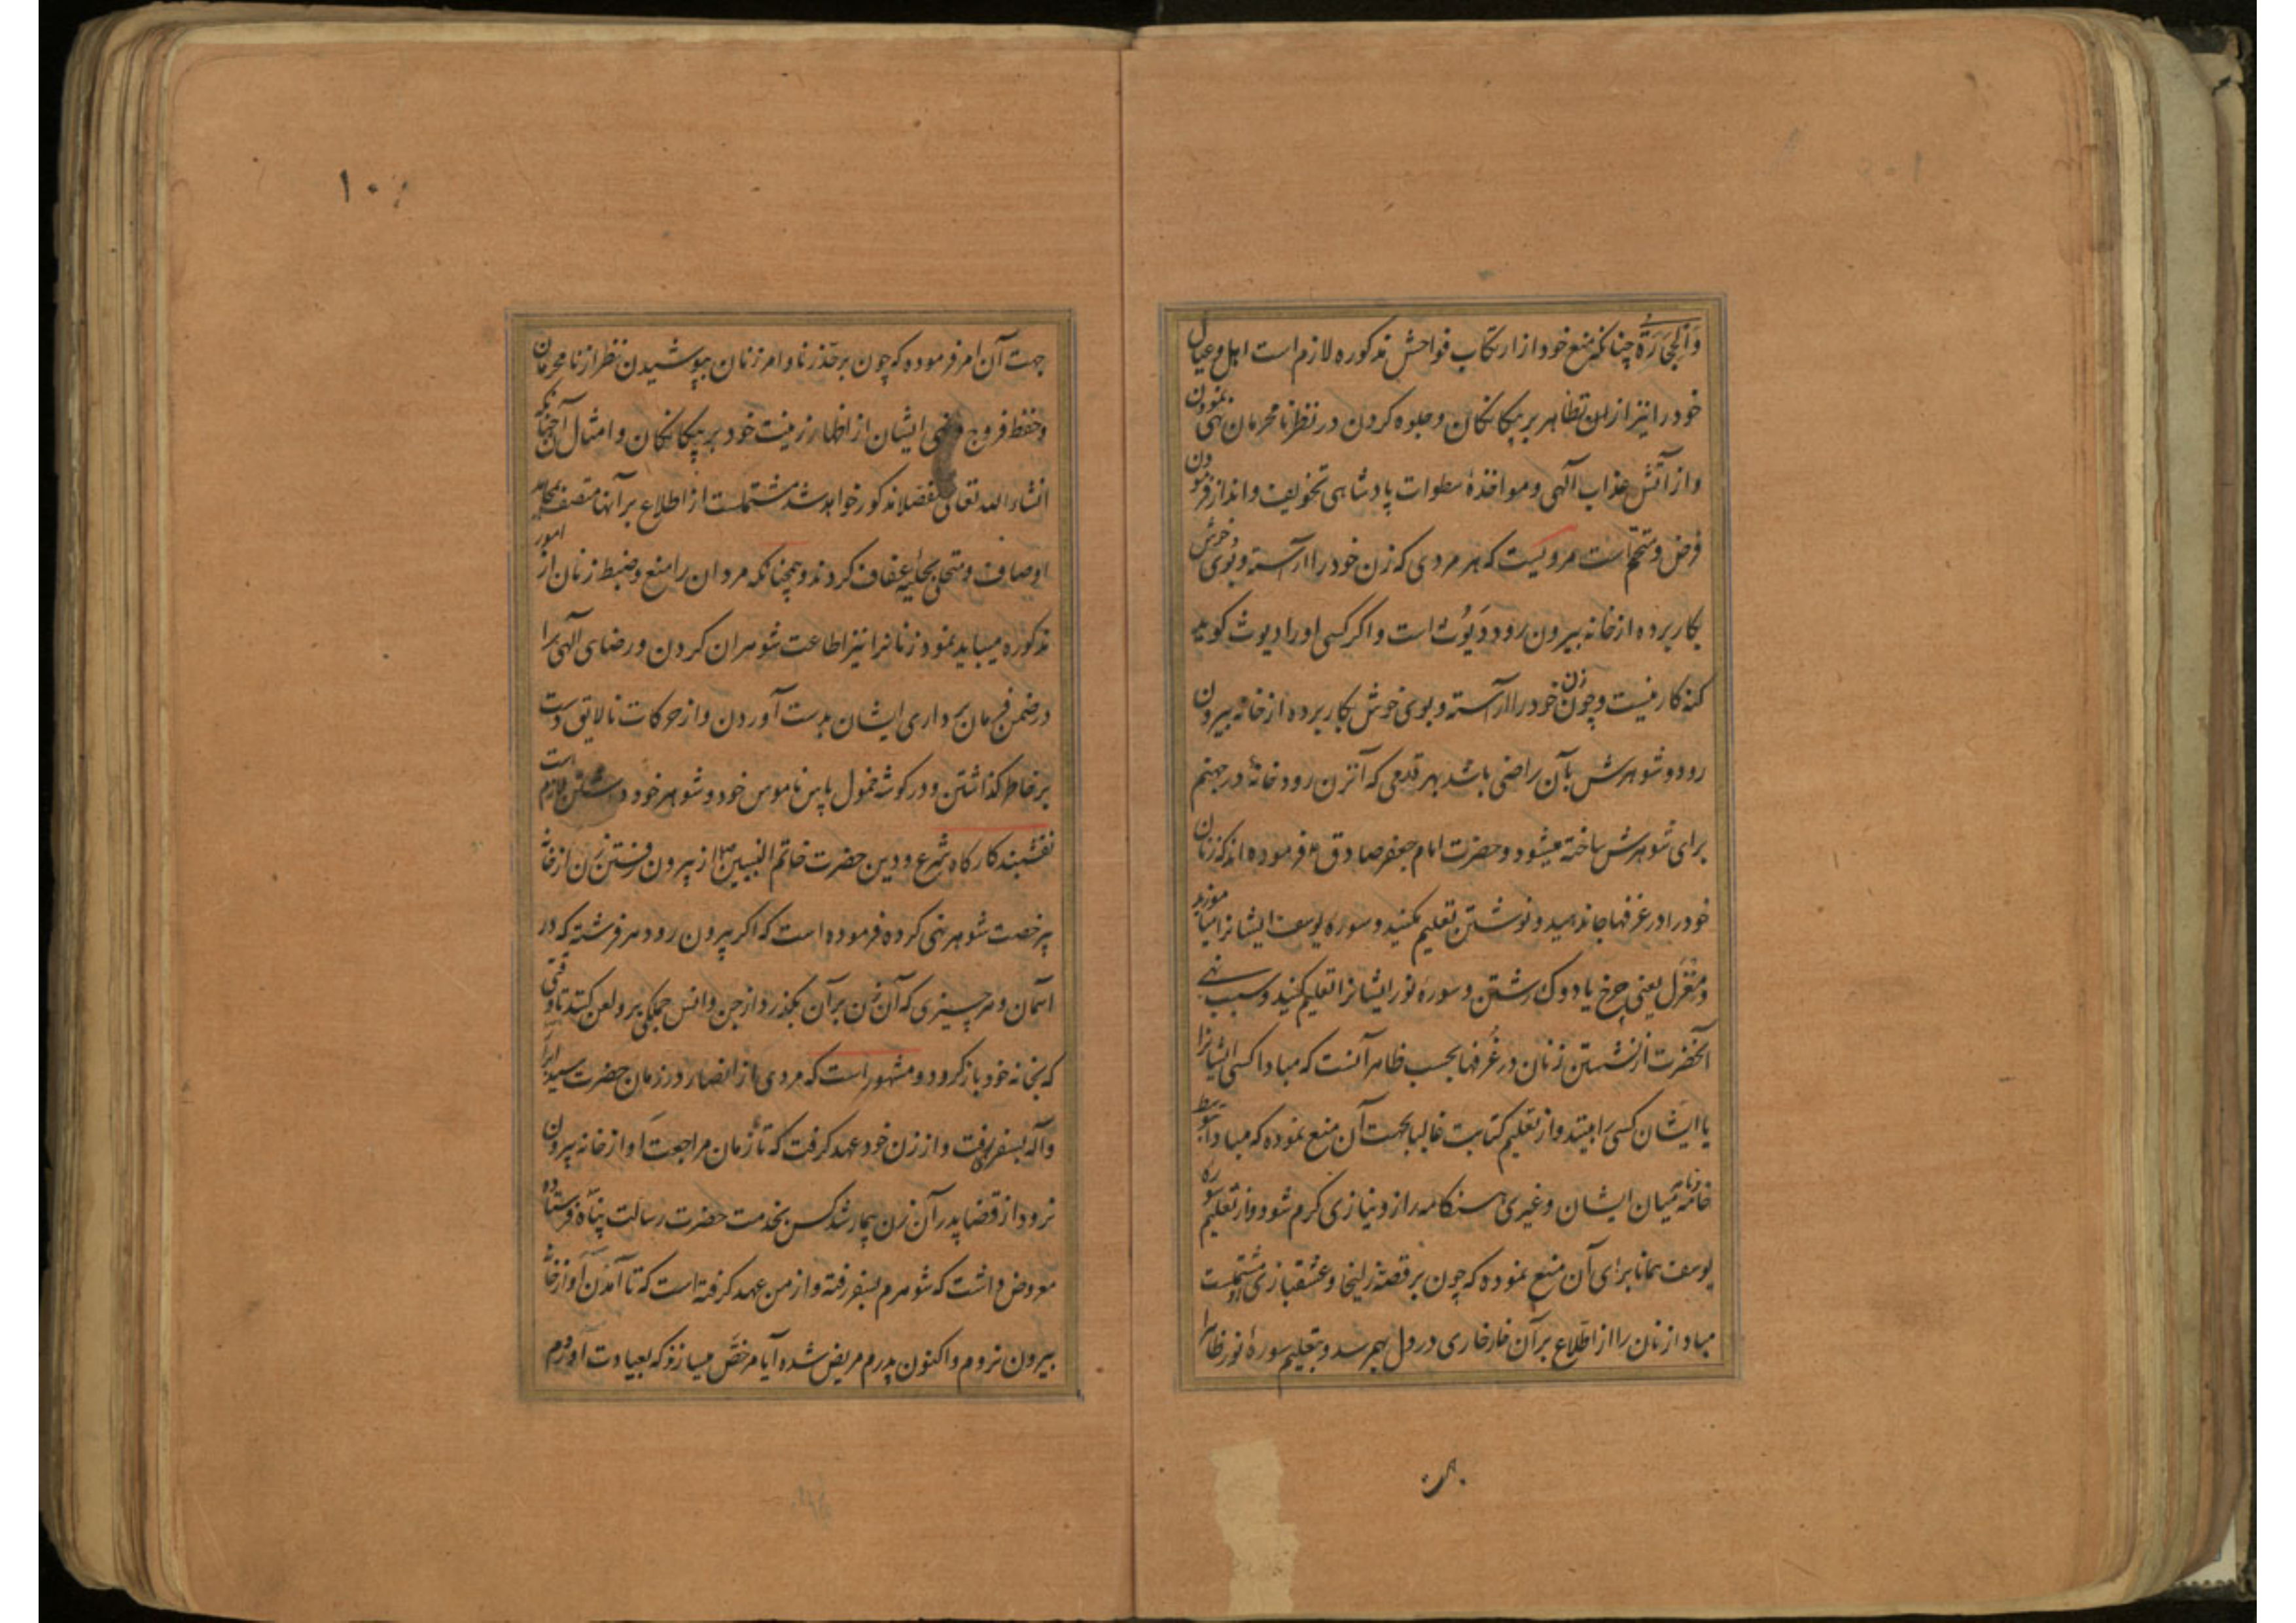 وَالْحِجَارَةُ چنانکه منع خود از ارتکاب فواحش مذکوره لازم است اهل و عیال
خود را نیز از ان تظاهر بر بیکانکان و جلوه کردن در نظر نامحرمان نهی نمودن
و از آتش عذاب الهی و مواخذهٔ سطوات پادشاهی تخویف و انذار فرمودن
فرض و متحتم است مرویست که هر مردی که زن خود را اراسته و بوی خوش
بکار برده از خانه بیرون رود دَیّوث است و اکر کسی او را دیوث کوید
کنه کار نیست و چون زن خود را اراسته و بوی خوش بکار برده از خانه بیرون
رود و شوهرش بآن راضی باشد بهر قدمی که آنزن رود خانهٔ در جهنم
برای شوهرش ساخته میشود و حضرت امام جعفر صادق ع فرموده اند که زنان
خود را در غرفها جا ندهید و نوشتن تعلیم مکنید و سوره یوسف ایشانرا میاموزید
و مغزل یعنی چرخ یا دوک رشتن و سوره نور ایشانرا تعلیم کنید و سبب نهی
آنحضرت از نشستن زنان در غُرفها بحسب ظاهر آنست که مبادا کسی ایشانرا
یا ایشان کسی را بینند و از تعلیم کتابت غالبا بجهت آن منع نموده که مبادا بتوسط
خامه و نامه میان ایشان و غیری هنکامه راز و نیازی کرم شود و از تعلیم سوره
یوسف همانا برای آن منع نموده که چون بر قصهٔ زلیخا و عشقبازی او مشتملست
مبادا زنان را از اطلاع بر آن خارخاری در دل بهم رسد و بتعلیم سوره نور ظاهرا
۱۰
جهت آن امر فرموده که چون بر حَدّ زنا و امر زنان بپوشیدن نظر از نامحرمان
و حفظ فروج و نهی ایشان از اظهار زینت خود بر بیکانکان و امثال آن چنانکه
انشاء الله تعالی مفصلا مذکور خواهد شد مشتملست از اطلاع بر آنها متصف
اوصاف و متحلی بحلیهٔ عفاف کردند و همچنانکه مردان را منع و ضبط زنان از امور
مذکوره میباید نمود زنانرا نیز اطاعت شوهران کردن و رضای الهی را
در ضمن فرمان برداری ایشان بدست آوردن و از حرکات نالایق دست
بر خاطر کذاشتن و در کوشهٔ خمول پاس ناموس خود و شوهر خود داشتن لازم است
نقشبند کارکاه شرع و دین حضرت خاتم النبیین ص از بیرون رفتن زن از خانه
بیرخصت شوهر نهی کرده فرموده است که اکر بیرون رود هر فرشته که در
آسمان و هر چیزی که آن زن بر آن بکذرد از جن و انس جملکی بر و لعن کنند تا وقتی
که بخانه خود باز کردد و مشهور است که مردی از انصار در زمان حضرت سید ابرار
و آله بسفر رفت و از زن خود عهد کرفت که تا زمان مراجعت او از خانه بیرون
نرود از قضا پدر آن زن بیمار شد کس بخدمت حضرت رسالت پناه فرستاده
معروض داشت که شوهرم بسفر رفته و از من عهد کرفته است که تا آمدن او از خانه
بیرون نروم و اکنون پدرم مریض شده آیا مرخص میسازند که بعیادت او روم